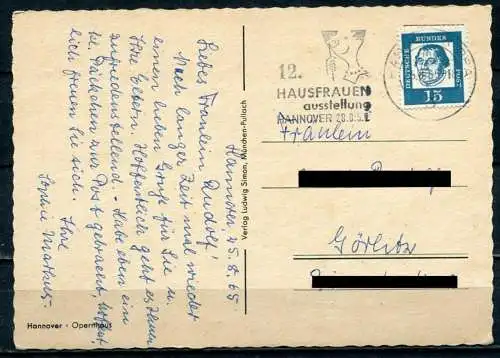 Hannover 25.8.65
Liebes Fräulein Rudolf!
Nach langer Zeit mal wieder
einen lieben Gruß für Sie u.
Ihre Eltern. Hoffentlich geht es Ihnen
zufriedenstellend. - Habe eben ein
Päckchen zur Post gebracht, hoffentl.
lich freuen Sie sich. Ihre
Sophie
Hannover - Opernhaus
Verlag Ludwig Simon, München-Pullach
12.
HAUSFRAUEN
ausstellung
HANNOVER 28.8.-5.9.
DEUTSCHE BUNDESPOST
15
Fräulein
Görlitz